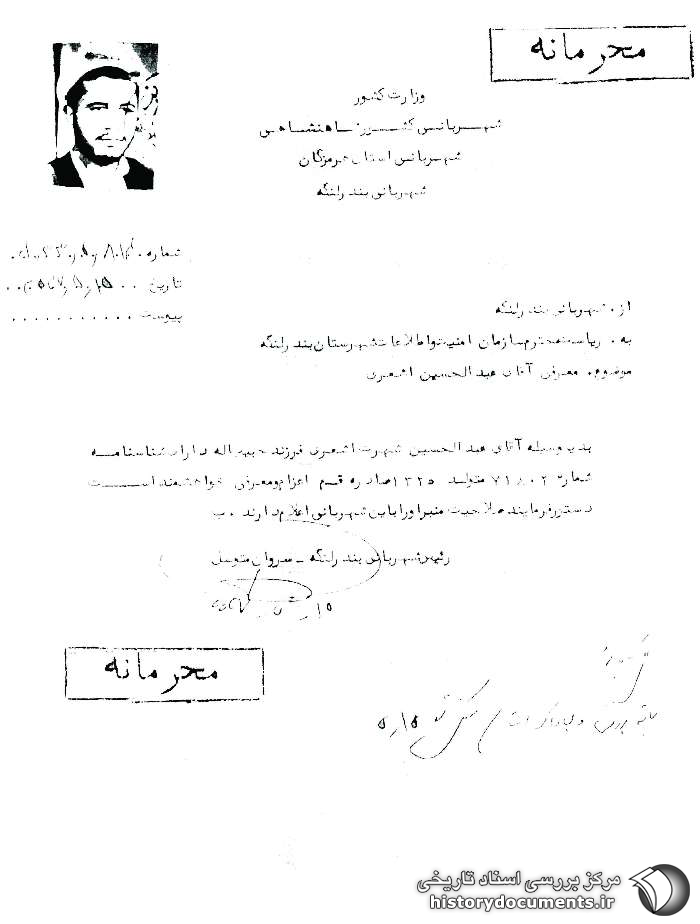 محرمانه
وزارت کشور
شهربانی کشور شاهنشاهی
شهربانی استان هرمزگان
شهربانی بندرلنگه
شماره
تاریخ
پیوست ...........
از: شهربانی بندرلنگه
به: ریاست محترم سازمان امنیت و اطلاعات شهرستان بندرلنگه
موضوع: معرفی آقای عبدالحسین اشعری
بدینوسیله آقای عبدالحسین شهرت اشعری فرزند حبیب اله دارای شناسنامه
شماره متولد ۱۳۲۵ صادره قم اعزام و معرفی خواهشمند است
دستور فرمایند صلاحیت منبر او را باین شهربانی اعلام دارند
رئیس شهربانی بندرلنگه - سروان متوسل
محرمانه
۱۵ر۵
مرکز بررسی اسناد تاریخی
historydocuments.ir